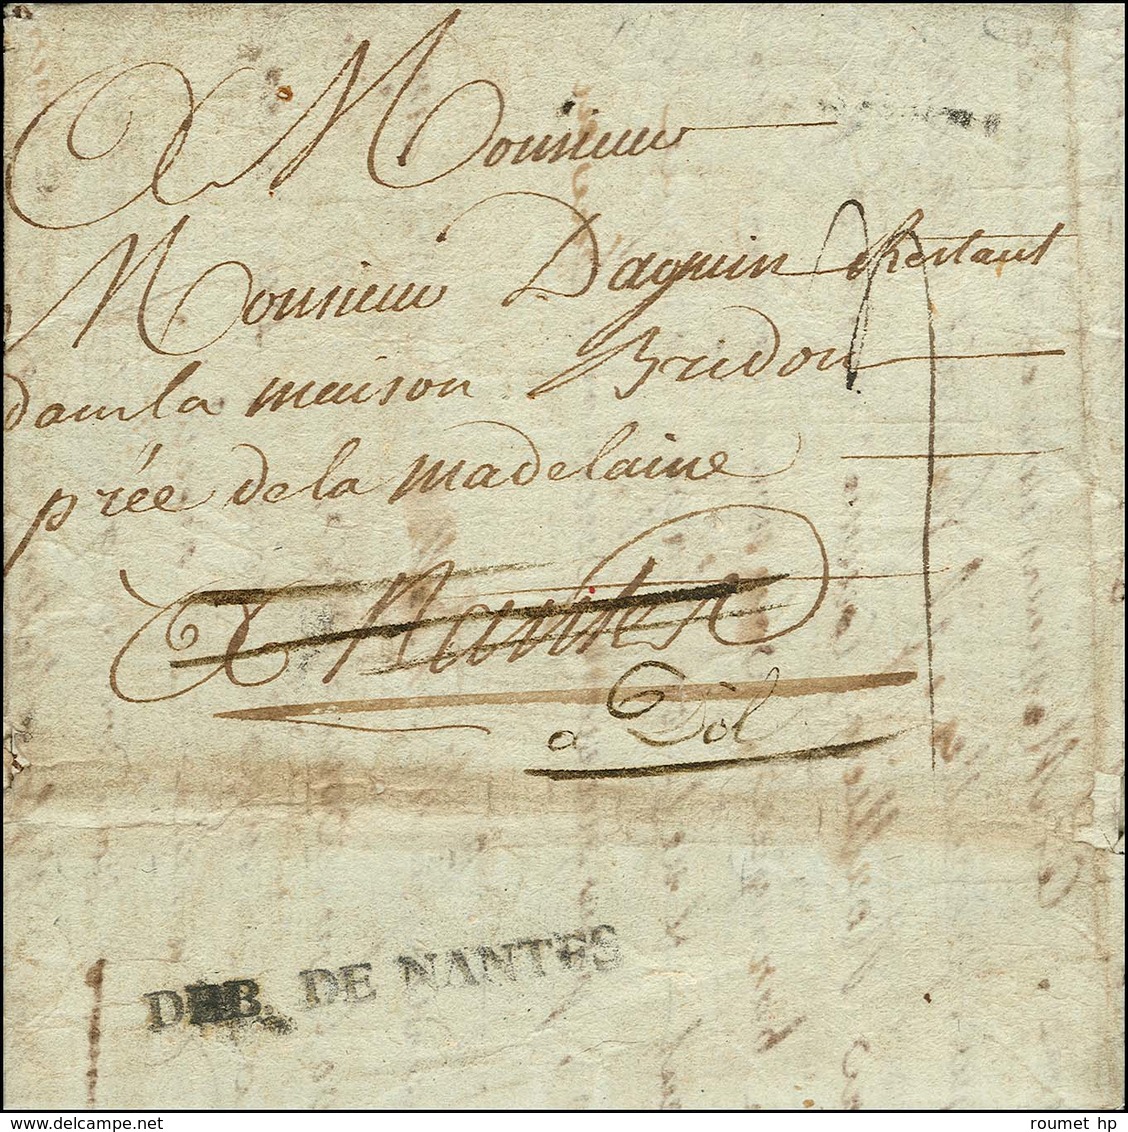 A Monsieur
Monsieur Daguin Restant
dans la maison Bridon
prée de la madelaine
A Nantes
a Dol
DEB. DE NANTES
delcampe.net
roumet hp